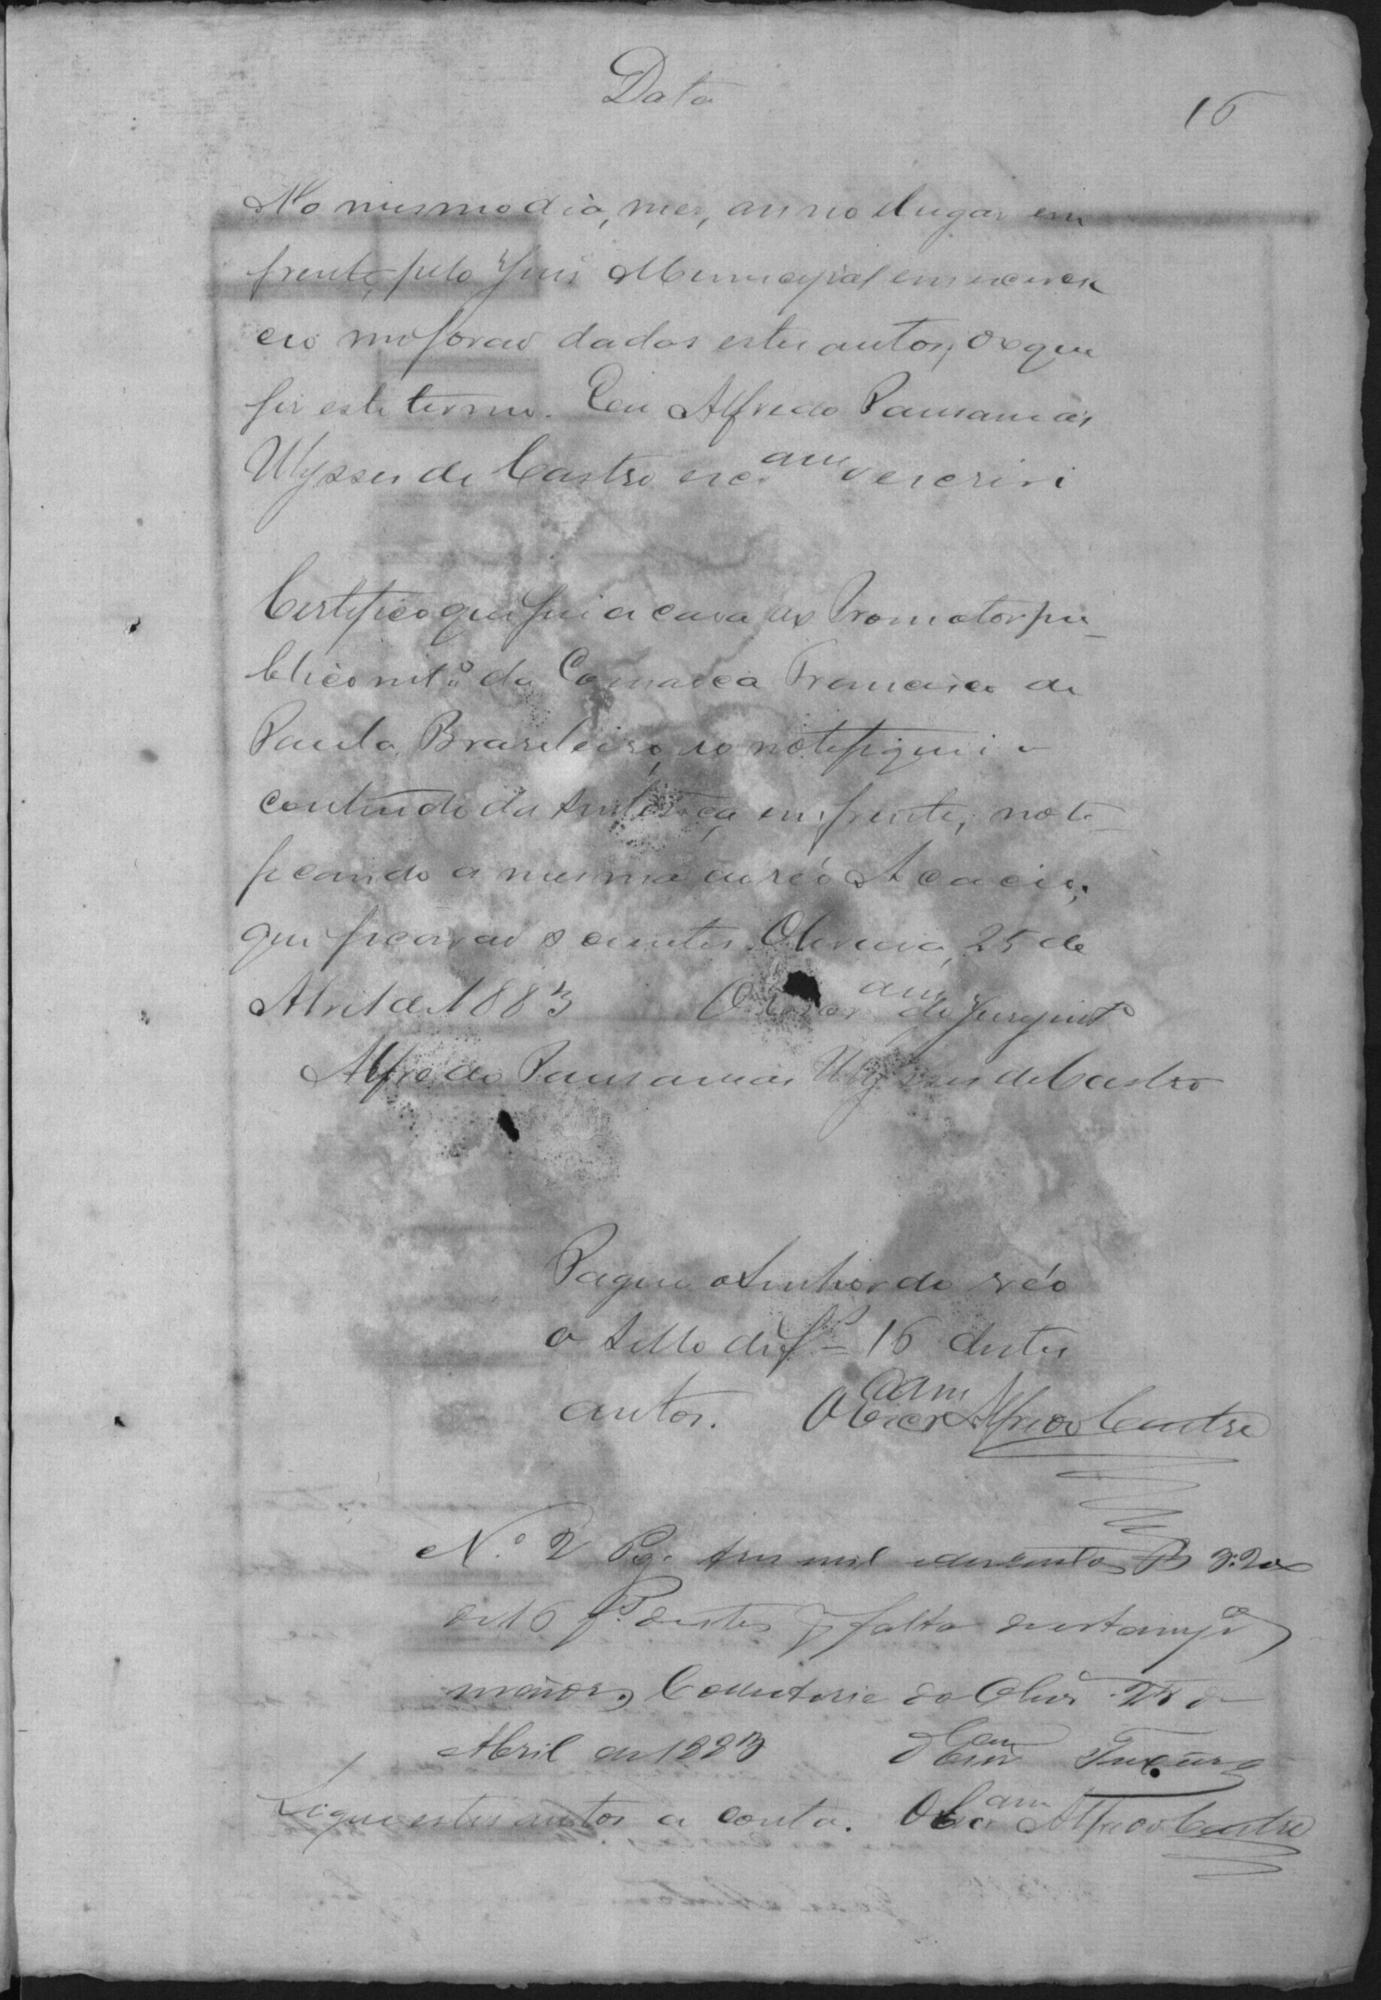 Data
16
No mesmo dia, mez, anno e lugar em
frente, pelo Juis Municipal em exerci
cio me forao dados estes autos, do que
fis este termo. Eu Alfredo Pausanias
Ulysses de Castro escam o escrivi
Certifico que fui a casa do Promotor pu-
blico intº da Comarca Francisco de
Paula Brasileiro, e o notefiquei o
conteudo da sentença em frente, note-
ficando a mesma ao réo Acacio,
que ficarao scientes. Oliveira, 25 de
Abril de 1883 O Escram do Jury intº
Alfredo Pausanias Ulysses de Castro
Pague o senhor do réo
o sello de fs 16 destes
autos. O Escram Alfredo Castro
N.º 2 Pg. tres mil e duzentos rs 3:200
de 16 fs. destes p falta de estamp
maiores. Collectoria da Olivª 25 de
Abril de 1883 O Escam
Sigão estes autos a conta. O Escram Alfredo Castro